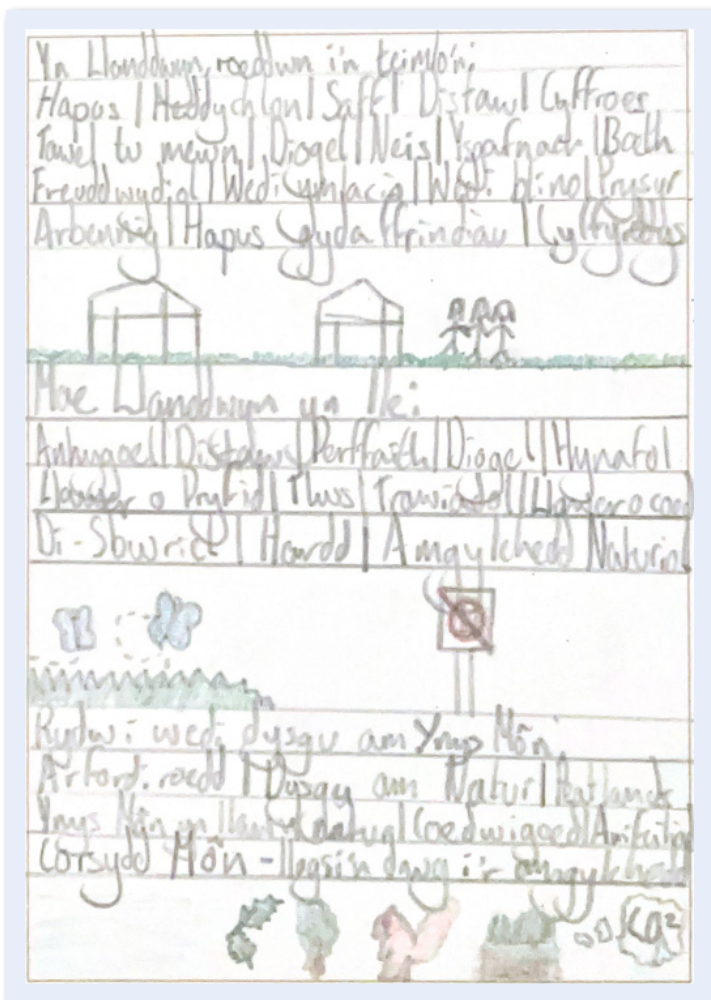 Yn Llanddwyn, roeddwn i'n teimlo'n:
Hapus | Heddychlon | Saff | Distaw | Cyffroes
Tawel tu mewn | Diogel | Neis | Ysgafnach | Baeth
Freuddwydiol | Wedi ymlacio | Wedi blino | Prysur
Arbennig | Hapus gyda ffrindiau | Cyffyrddus
Mae Llanddwyn yn lle:
Anhygoel | Distaw | Perffaith | Diogel | Hynafol
Llawer o Pryfid | Tlws | Trawiadol | Llawer o coed
Di-Sbwriel | Hardd | Amgylchedd Naturiol
Rydw i wedi dysgu am Ynys Môn:
Arfordiroedd | Dysgu am Natur | Peatlands
Ynys Môn yn llawn | Coedwigoedd | Anifeiliaid
Corsydd Môn - llegsi'n dwg i'r amgylchedd
CO2